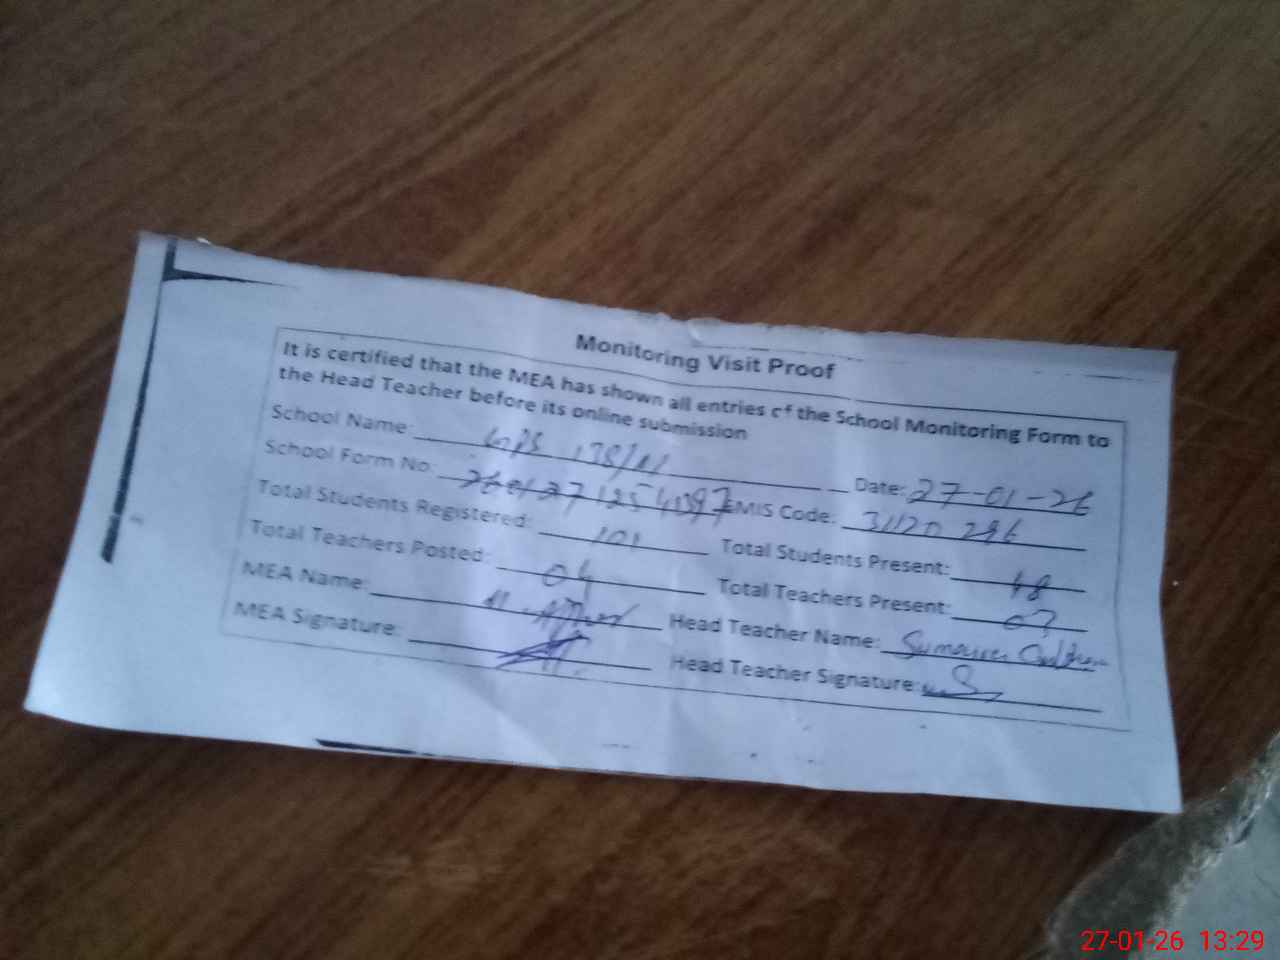 Monitoring Visit Proof
It is certified that the MEA has shown all entries of the School Monitoring Form to
the Head Teacher before its online submission
School Name: 178/ Date: 27-01-26
School Form No: EMIS Code: 31120296
Total Students Registered: 101 Total Students Present: 48
Total Teachers Posted: 04 Total Teachers Present: 03
MEA Name: Head Teacher Name:
MEA Signature: Head Teacher Signature:
27-01-26 13:29